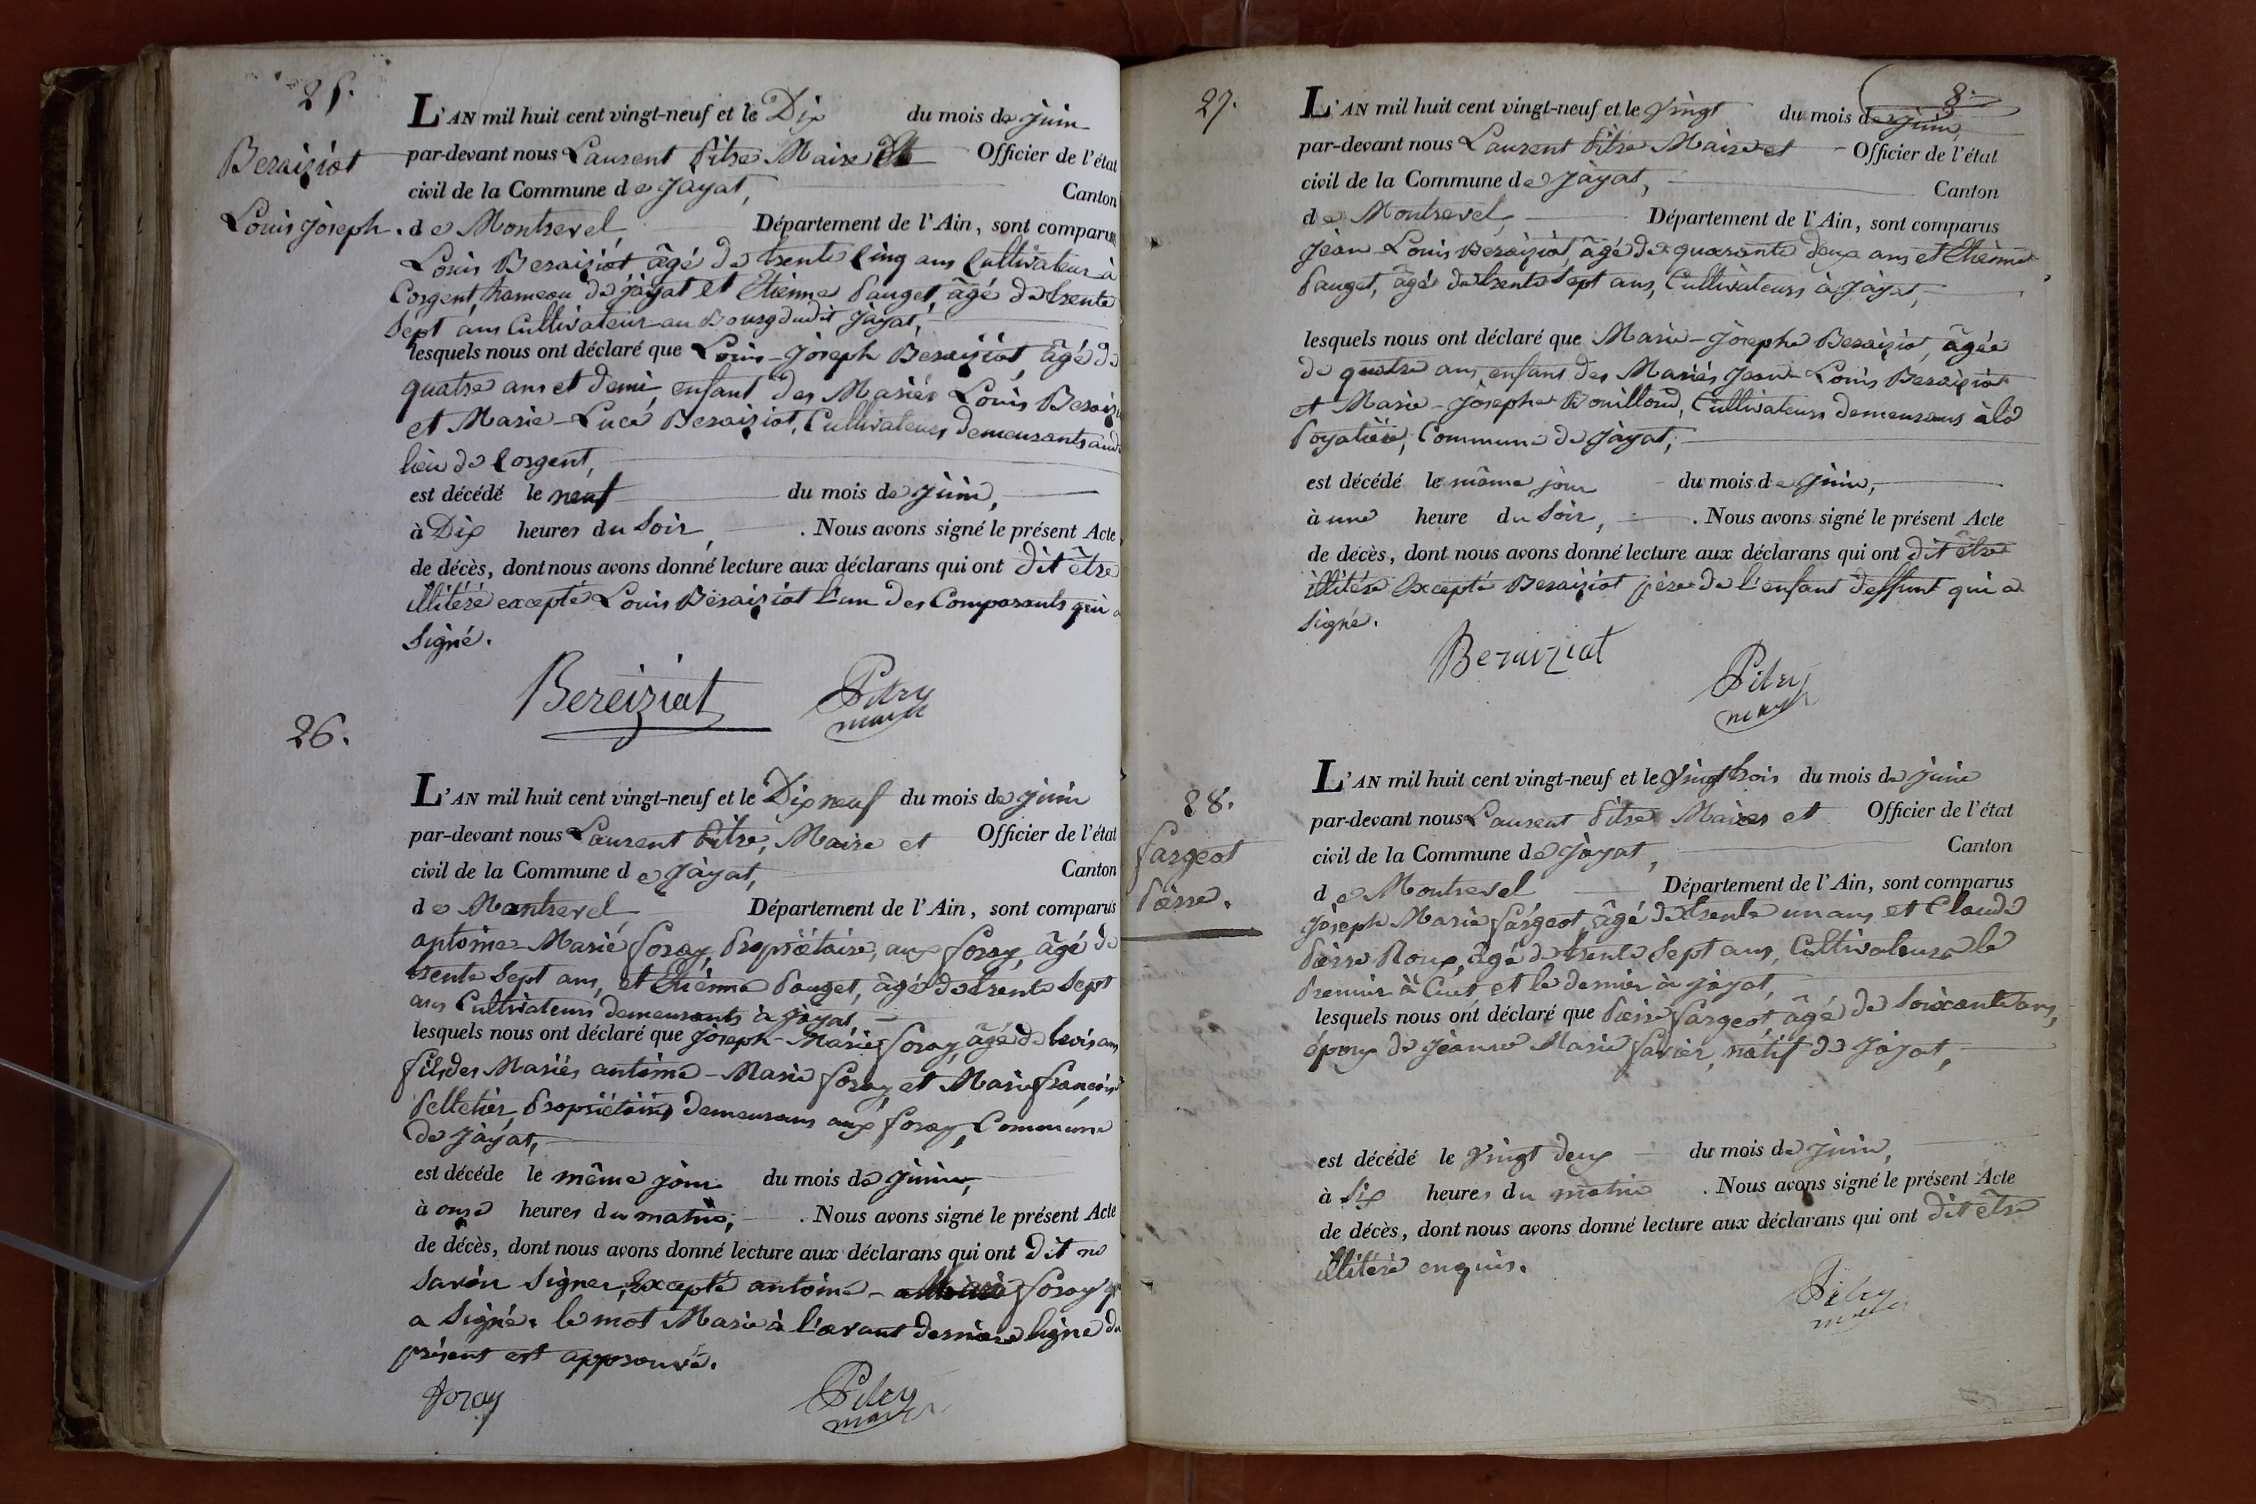 25.
Beraiziat
Louis Joseph.
L'AN mil huit cent vingt-neuf et le Dix du mois de juin
par-devant nous Laurent Pitre Maire et Officier de l'état
civil de la Commune de Jayat, Canton
de Montrevel Département de l'Ain, sont comparus
Louis Beraiziat âgé de trente cinq ans Cultivateur à
Corgent, hameau de jayat et Etienne Pauget, âgé de trente
Sept ans Cultivateur au Bourg dudit Jayat,
lesquels nous ont déclaré que Louis-Joseph Beraiziat, âgé de
quatre ans et demi, enfant des Mariés Louis Beraizi
et Marie-Luce Beraiziat, Cultivateurs demeurants aud
lieu de Corgent,
est décédé le neuf du mois de juin,
à Dix heures du Soir, . Nous avons signé le présent Acte
de décès, dont nous avons donné lecture aux déclarans qui ont dit être
illitéré excepté Louis Beraiziat l'un des Comparants qui a
Signé.
Bereiziat Pitre
maire
26.
L'AN mil huit cent vingt-neuf et le Dix neuf du mois de juin
par-devant nous Laurent Pitre, Maire et Officier de l'état
civil de la Commune de Jayat, Canton
de Montrevel Département de l'Ain, sont comparus
antoine-Marie foray, Propriétaire, aux foray, âgé de
trente Sept ans, et Etienne Pauget, âgé de trente Sept
ans Cultivateurs demeurants à Jayat,
lesquels nous ont déclaré que Joseph-Marie foray, âgé de trois ans
fils des Mariés antoine-Marie foray et Marie françoise
Pelletier, Propriétaires demeurans aux foray, Commune
de Jayat,
est décédé le même jour du mois de juin,
à onze heures du matin, . Nous avons signé le présent Acte
de décès, dont nous avons donné lecture aux déclarans qui ont dit ne
Savoir Signer, Excepté antoine-Marie foray qui
a Signé. le mot Marie à l'avant dernière ligne du
présent est approuvé.
foray Pitre
maire
8.
27.
L'AN mil huit cent vingt-neuf et le Vingt du mois de juin,
par-devant nous Laurent Pitre Maire et Officier de l'état
civil de la Commune de Jayat, Canton
de Montrevel, Département de l'Ain, sont comparus
Jean-Louis Beraiziat, âgé de quarante deux ans et Etienne
Pauget, âgé de trente Sept ans, Cultivateurs à Jayat,
lesquels nous ont déclaré que Marie-Josephe Beraiziat, âgée
de quatre ans, enfant des Mariés Jean-Louis Beraiziat
et Marie-Josephe Bouilloud, Cultivateurs demeurans à la
Poyatière, Commune de Jayat,
est décédé le même jour du mois de juin,
à une heure du Soir, . Nous avons signé le présent Acte
de décès, dont nous avons donné lecture aux déclarans qui ont dit être
illitéré Excepté Beraiziat père de l'enfant deffunt qui a
signé.
Beraiziat Pitre
maire
28.
fargeot
Pierre.
L'AN mil huit cent vingt-neuf et le Vingt trois du mois de juin
par-devant nous Laurent Pitre Maire et Officier de l'état
civil de la Commune de Jayat, Canton
de Montrevel Département de l'Ain, sont comparus
Joseph Marie fargeot, âgé de trente un ans, et Claude
Pierre Roux, âgé de trente Sept ans, Cultivateurs le
Premier à Cuet et le dernier à Jayat,
lesquels nous ont déclaré que Pierre fargeot âgé de Soixante ans,
époux de Jeanne Marie favier, natif de Jayat,
est décédé le Vingt deux du mois de juin,
à Six heures du matin . Nous avons signé le présent Acte
de décès, dont nous avons donné lecture aux déclarans qui ont dit être
illitéré enquis.
Pitre
maire